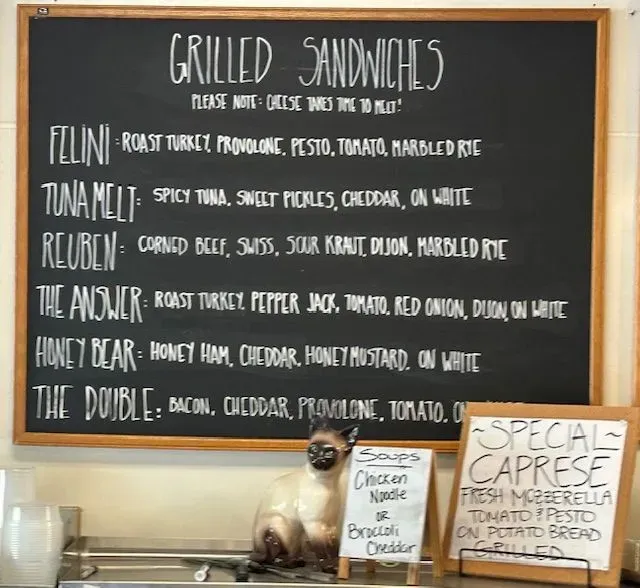 GRILLED SANDWICHES
PLEASE NOTE: CHEESE TAKES TIME TO MELT!
FELINI: ROAST TURKEY, PROVOLONE, PESTO, TOMATO, MARBLED RYE
TUNA MELT: SPICY TUNA, SWEET PICKLES, CHEDDAR, ON WHITE
REUBEN: CORNED BEEF, SWISS, SOUR KRAUT, DIJON, MARBLED RYE
THE ANSWER: ROAST TURKEY, PEPPER JACK, TOMATO, RED ONION, DIJON, ON WHITE
HONEY BEAR: HONEY HAM, CHEDDAR, HONEY MUSTARD, ON WHITE
THE DOUBLE: BACON, CHEDDAR, PROVOLONE, TOMATO,
Soups
Chicken
Noodle
OR
Broccoli
Cheddar
~SPECIAL~
CAPRESE
FRESH MOZZERELLA
TOMATO & PESTO
ON POTATO BREAD
GRILLED